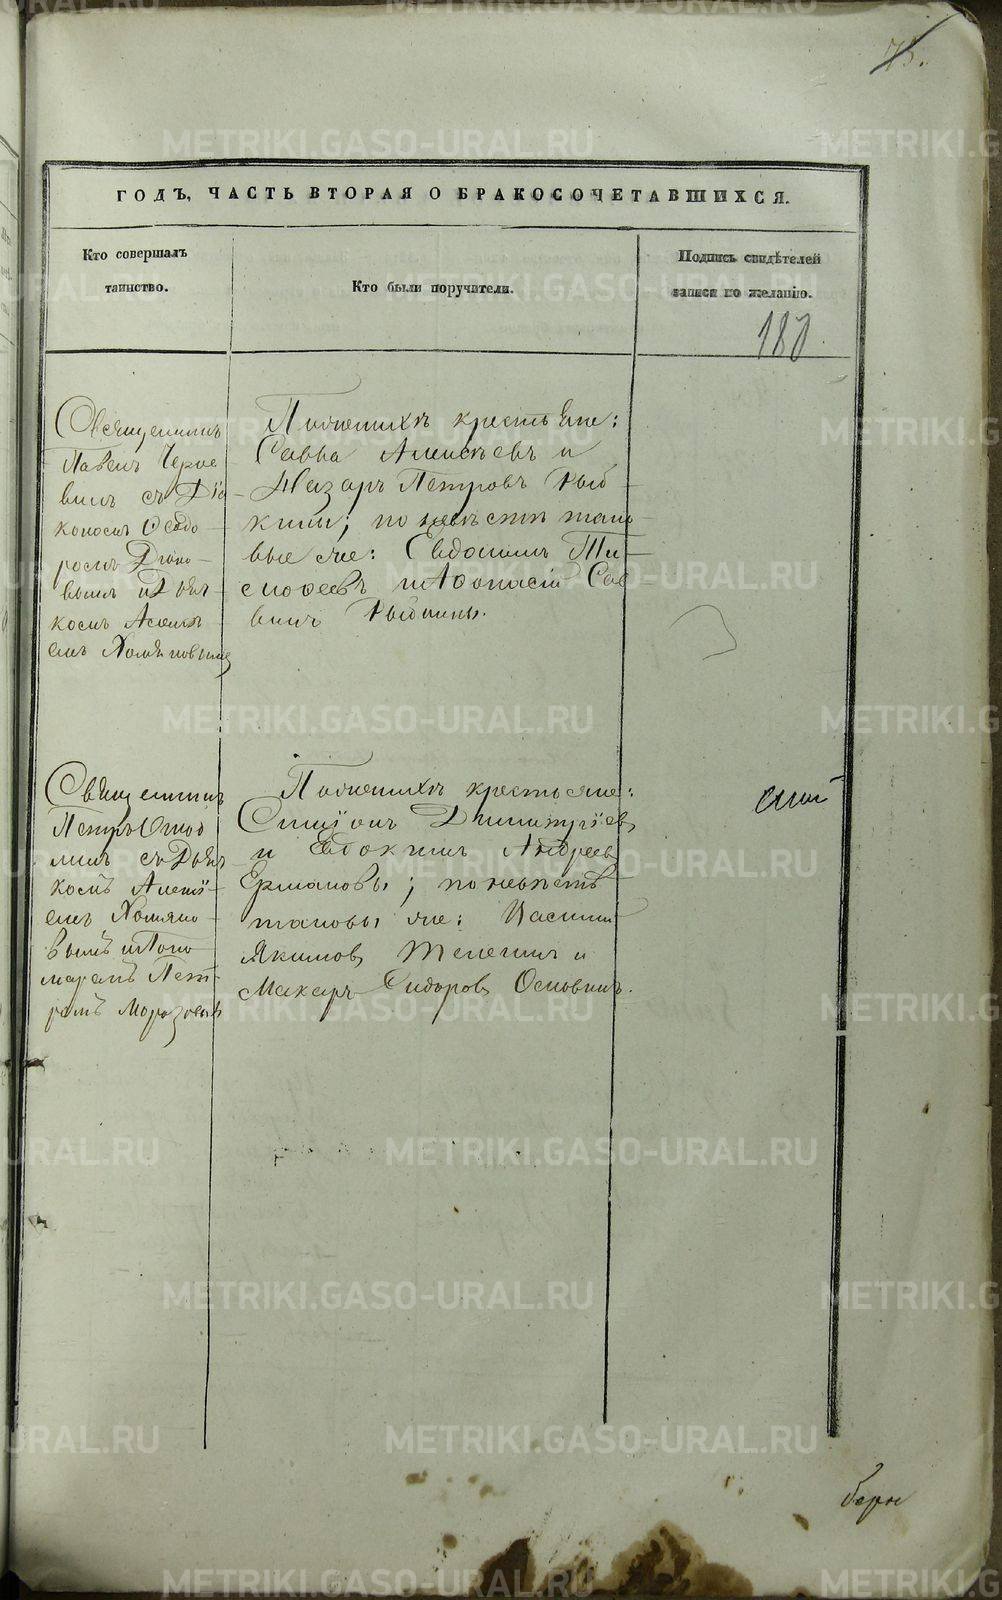 75.
ГОДЪ, ЧАСТЬ ВТОРАЯ О БРАКОСОЧЕТАВШИХСЯ.
Кто совершалъ
таинство.
Кто были поручители.
Подпись свидѣтелей
записи по желанію.
180
Священникъ
Павелъ Черне
винъ съ Діа
кономъ Ѳеодо
ромъ
вымъ и Дьяч
комъ Алексѣ
емъ Хомяковымъ
По женихѣ крестьяне:
Савва Алексѣевъ и
Назаръ Петровъ Рыб
кины; по невѣстѣ тако
вые же: Евдокимъ Ти
моѳеевъ и Аѳонасій Сав
винъ Рыбкины.
Священникъ
Петръ
съ Дьяч
комъ Алексѣ
емъ Хомяко
вымъ и Поно
маремъ Пет
ромъ Морозовымъ
По женихѣ крестьяне:
Симеонъ Димитріев
и Евдокимъ Андреев
Ермаковы; по невѣстѣ
таковы же: Василій
Якимов Телегин и
Макаръ Сидоров.
METRIKI.GASO-URAL.RU